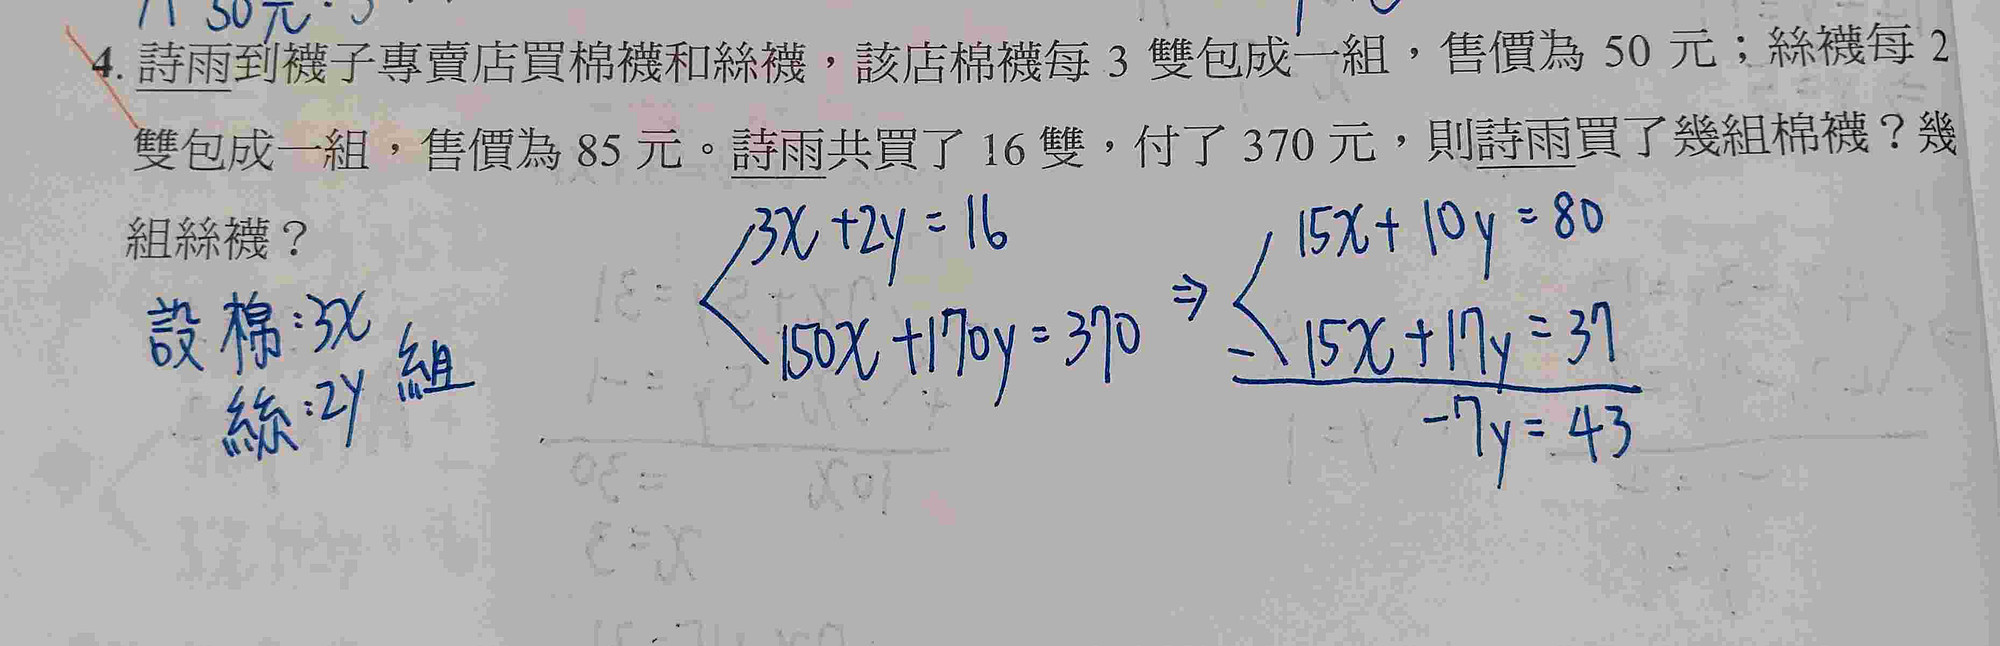 30元
4. 詩雨到襪子專賣店買棉襪和絲襪，該店棉襪每 3 雙包成一組，售價為 50 元；絲襪每 2
雙包成一組，售價為 85 元。詩雨共買了 16 雙，付了 370 元，則詩雨買了幾組棉襪？幾
組絲襪？
設 棉:3x
絲:2y 組
3x+2y=16
150x+170y=370
⇒
15x+10y=80
- 15x+17y=37
-7y=43